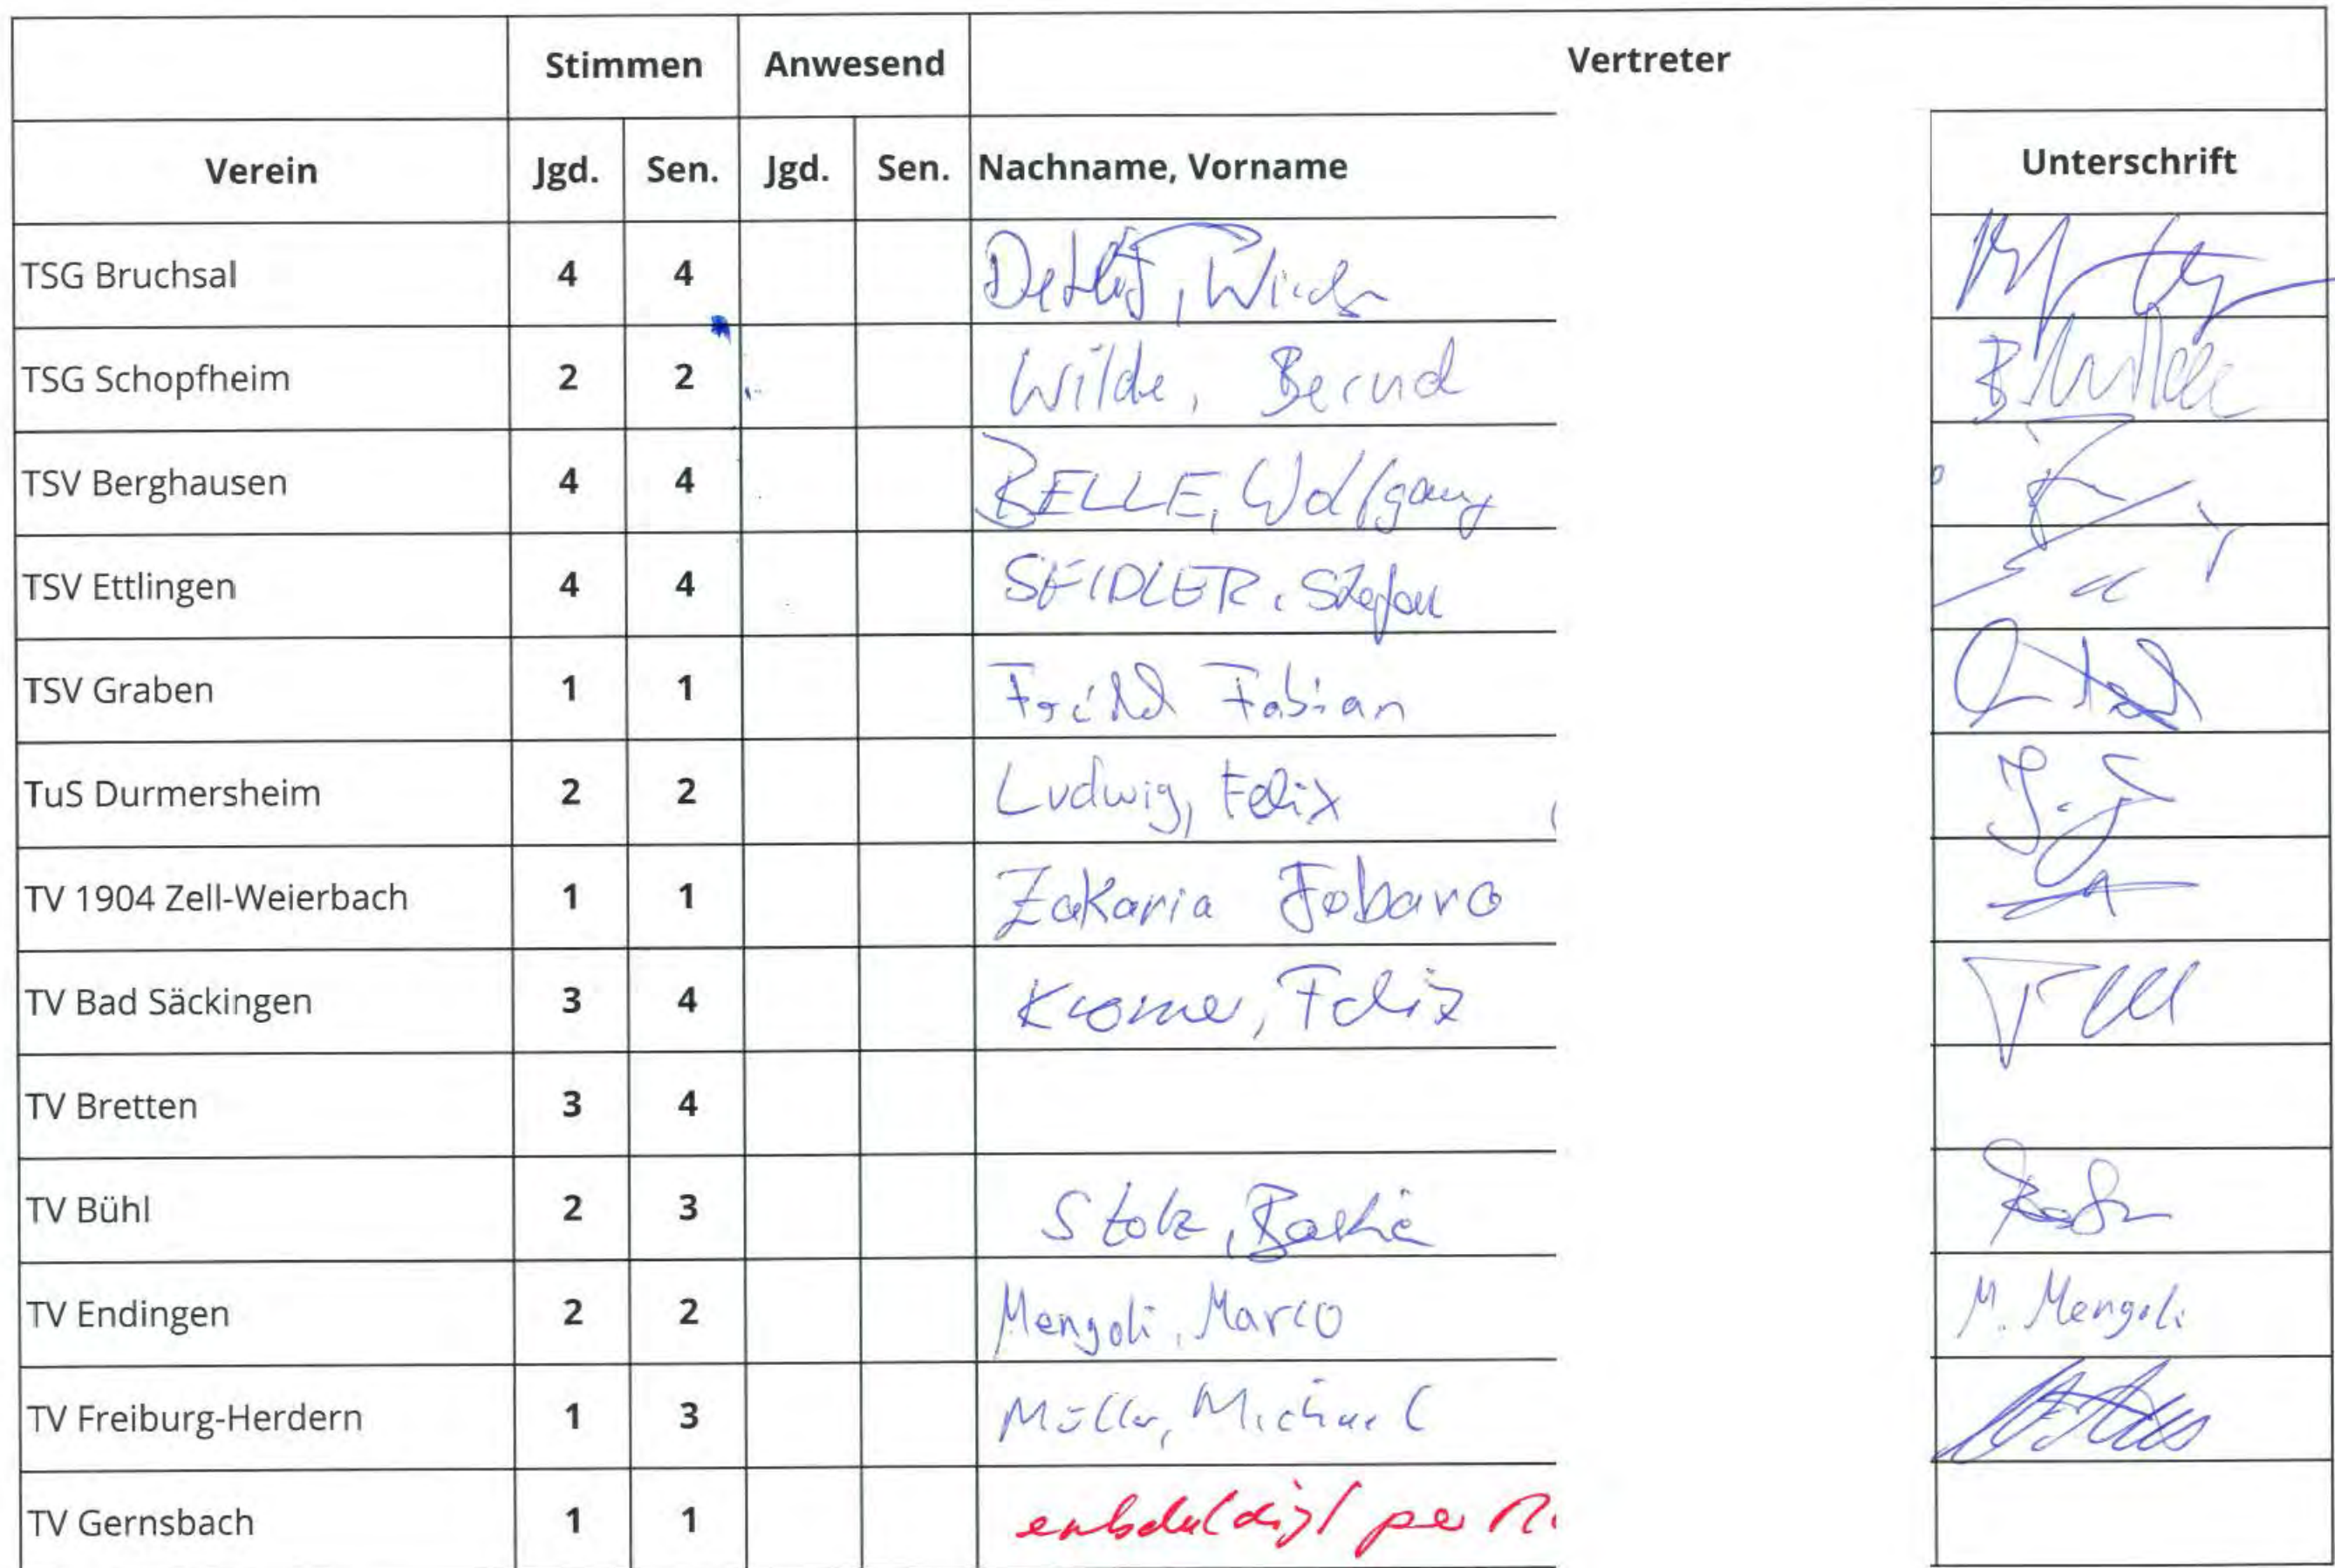 Stimmen Anwesend Vertreter
Verein Jgd. Sen. Jgd. Sen. Nachname, Vorname Unterschrift
TSG Bruchsal 4 4
TSG Schopfheim 2 2 Wilde, Bernd
TSV Berghausen 4 4 BELLE, Wolfgang
TSV Ettlingen 4 4 SEIDLER, Stefan
TSV Graben 1 1 Fabian
TuS Durmersheim 2 2 Ludwig, Felix
TV 1904 Zell-Weierbach 1 1 Zakaria Jobaro
TV Bad Säckingen 3 4 Kromer, Felix
TV Bretten 3 4
TV Bühl 2 3 Stolz,
TV Endingen 2 2 Mengoli, Marco M. Mengoli
TV Freiburg-Herdern 1 3 Müller, Michael
TV Gernsbach 1 1 entschuldigt per